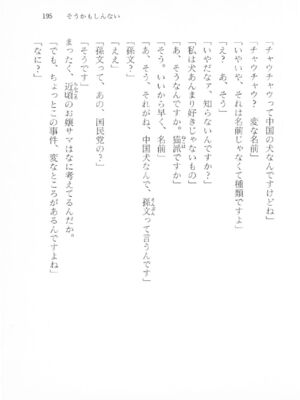 195　そうかもしんない
「チャウチャウって中国の犬なんですけどね」
「チャウチャウ？　変な名前」
「いやいや、それは名前じゃなくて種類ですよ」
「いやだなァ、知らないんですか？」
「私は犬あんまり好きじゃないもの」
「あ、そうなんですか。猫派ですか」
「そう。いいから早く、名前」
「あ、そう、それがね、中国犬なんで、孫文って言うんです」
「孫文？」
「ええ」
「孫文って、あの、国民党の？」
「そうです」
まったく、近頃のお嬢サマはなに考えてるんだか。
「でも、ちょっとこの事件、変なところがあるんですよね」
「なに？」